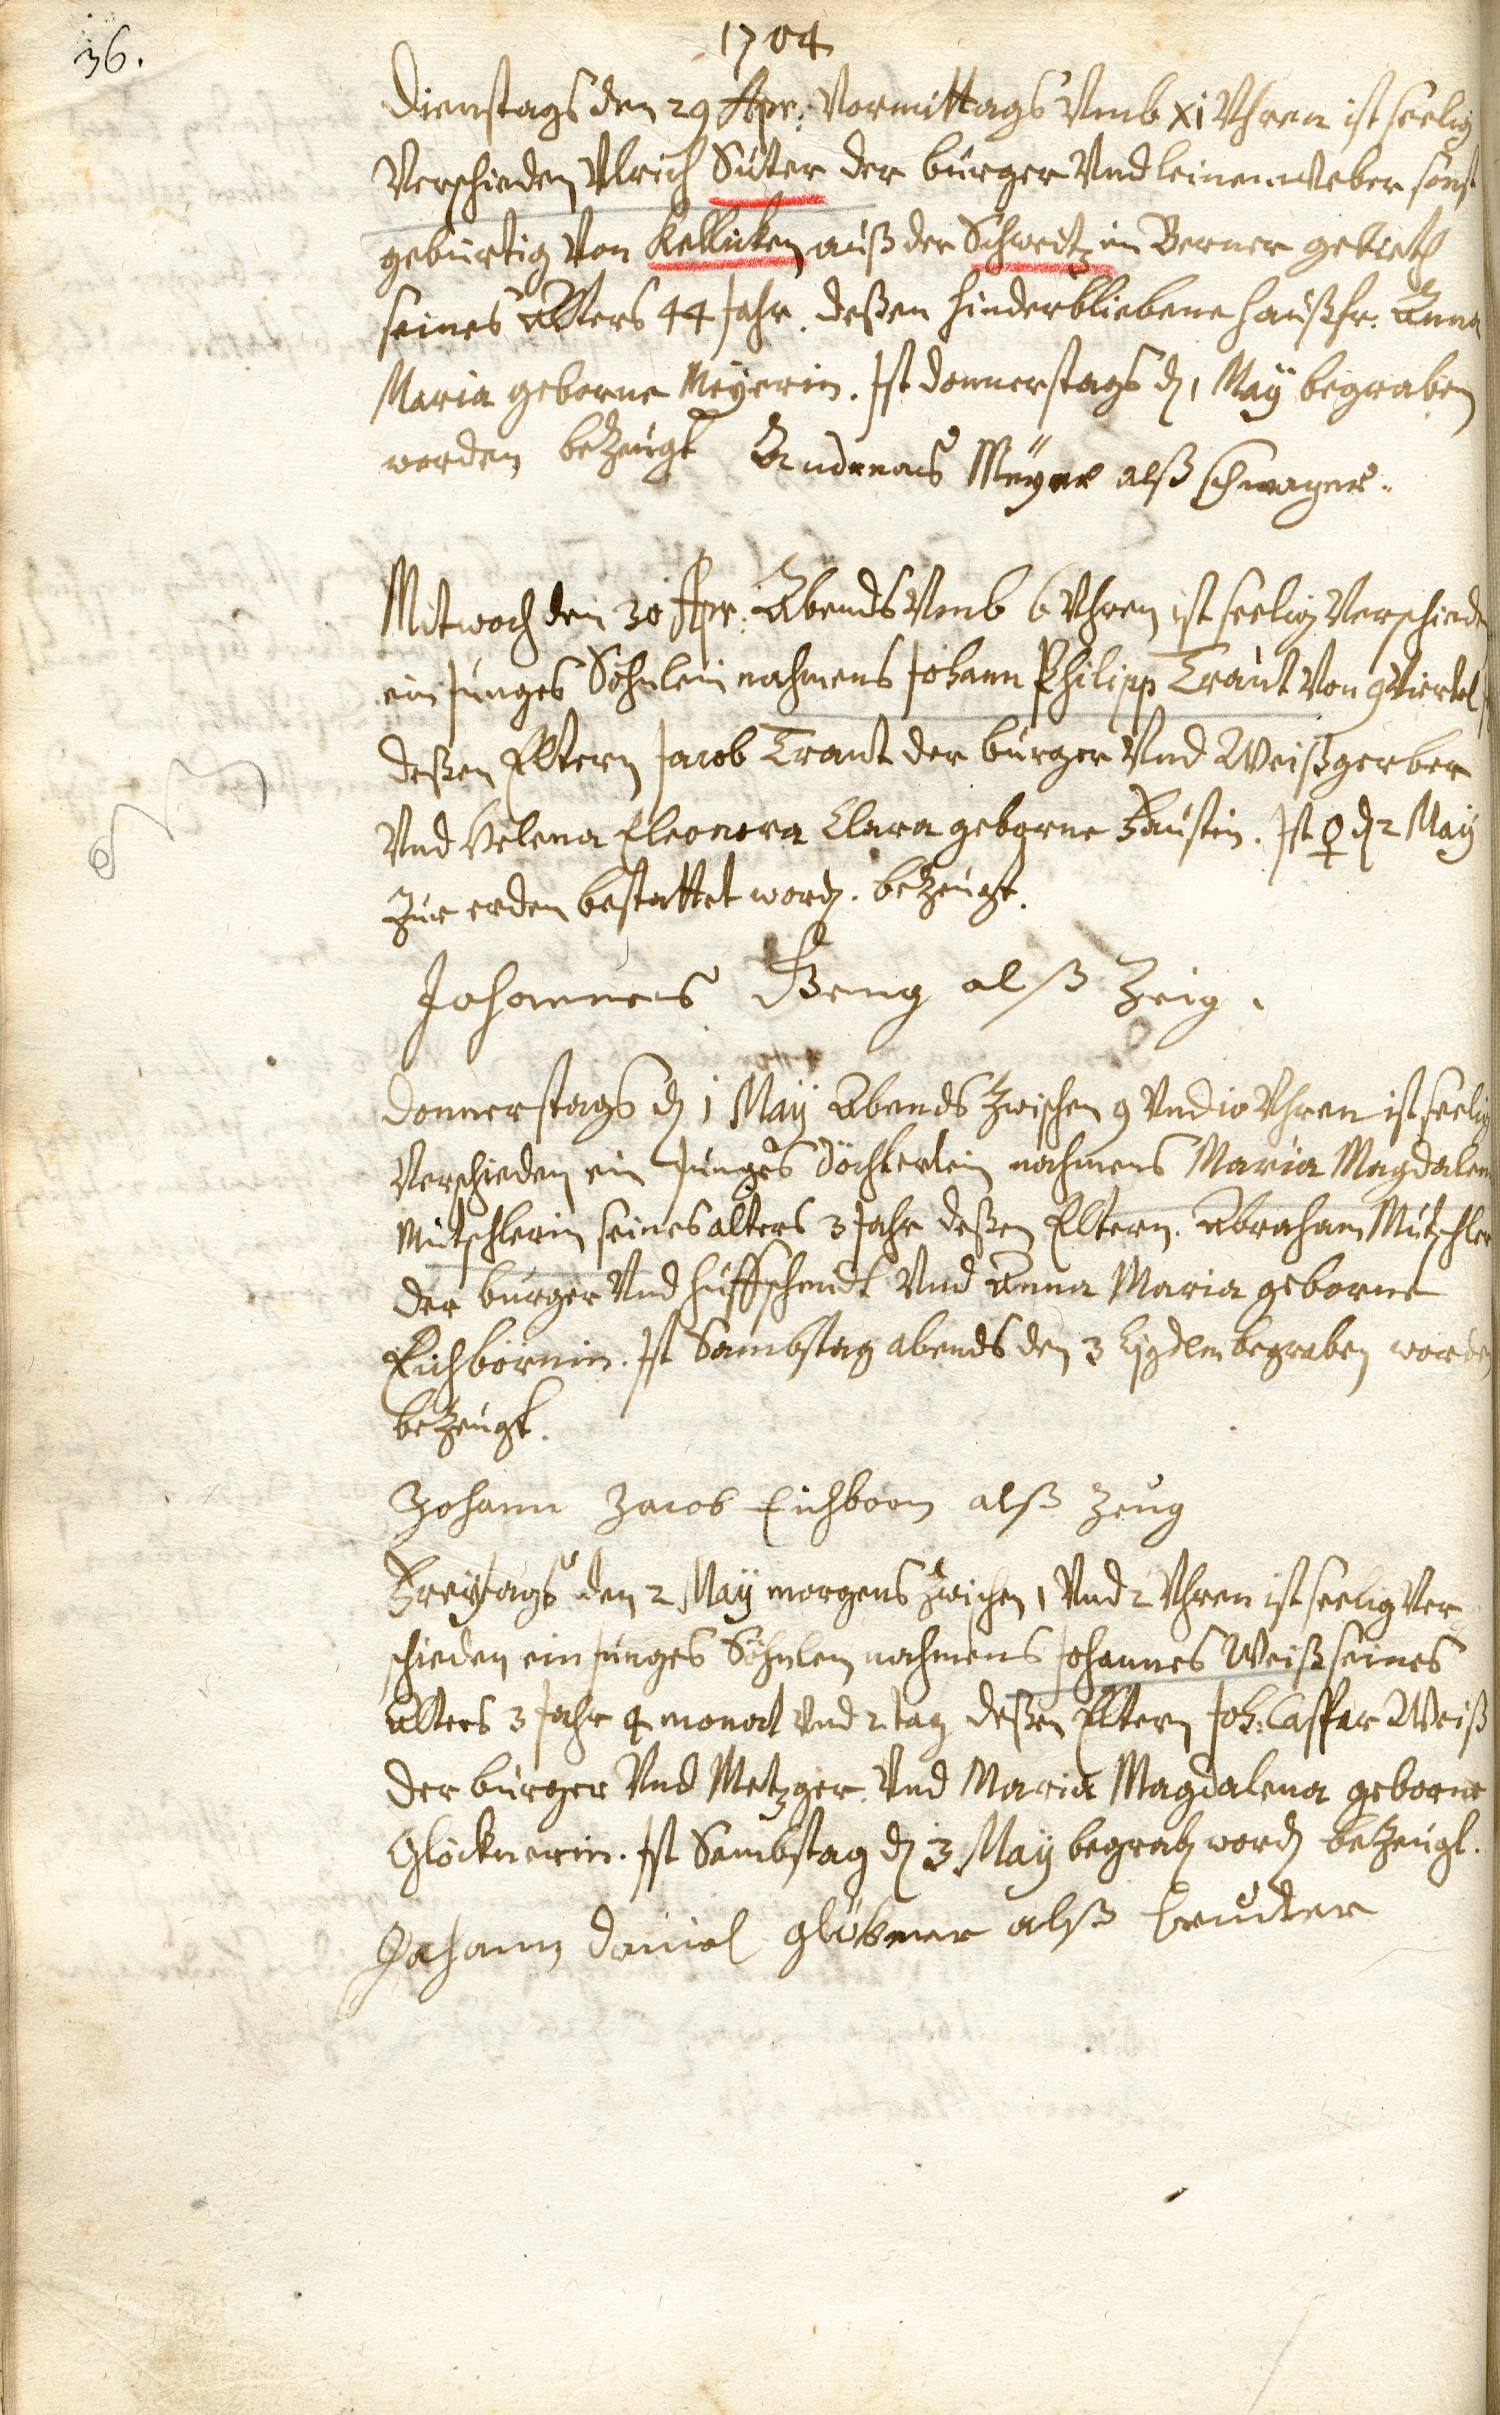 36.
1704
Dienstags den 29 Apr: Vormittags Vmb XI Vhren ist seelig
Verschieden Vlrich Suter der burger Vnd leinenweber sonst
geburtig Von Kellicken auß der Schweitz im Berner gebieth
seines alters 44 Jahr. deßen hinderbliebene haußfr. Anna
Maria geborne Meyerin. Ist donnerstags dn 1 Maÿ begraben
worden bezeugt Andreas Meyer alß schwager.
Mitwoch den 30 Apr: Abends Vmb 6 Vhren ist seelig Verschieden
ein Junges Söhnlein nahmens Johann Philipp Traut Von 9 Viertel
deßen Eltern Jacob Traut der burger Vnd Weißgerber
Vnd Helena Eleonora Clara geborne Faustin. Ist ♀ dn 2 Maÿ
Zur erden bestattet word. bezeugt.
Johannes alß Zeig.
Donnerstags dn 1 Maÿ Abends Zwischen 9 Vnd 10 Vhren ist seelig
Verschieden ein Junges döchterlein nahmens Maria Magdalena
Mutschlerin seines alters 3 Jahr deßen Eltern. Abraham Mutschler
der burger Vnd huffschmidt Vnd Anna Maria geborne
Eichbornin. Ist Sambstag abends den 3 begraben worden
bezeugt.
Johann Jacob Eichborn alß Zeug
Freytags den 2 Maÿ morgens Zwischen 1 Vnd 2 Vhren ist seelig Ver
schieden ein Junges Söhnlen nahmens Johannes Weiß seines
alters 3 Jahr 4 monat Vnd 2 tag deßen Eltern Joh: Caspar Weiß
der burger Vnd Metzger. Vnd Maria Magdalena geborne
Glöcknerin. Ist Sambstag dn 3 Maÿ begrab word bezeugt.
Johann Daniel glöckner alß bruder